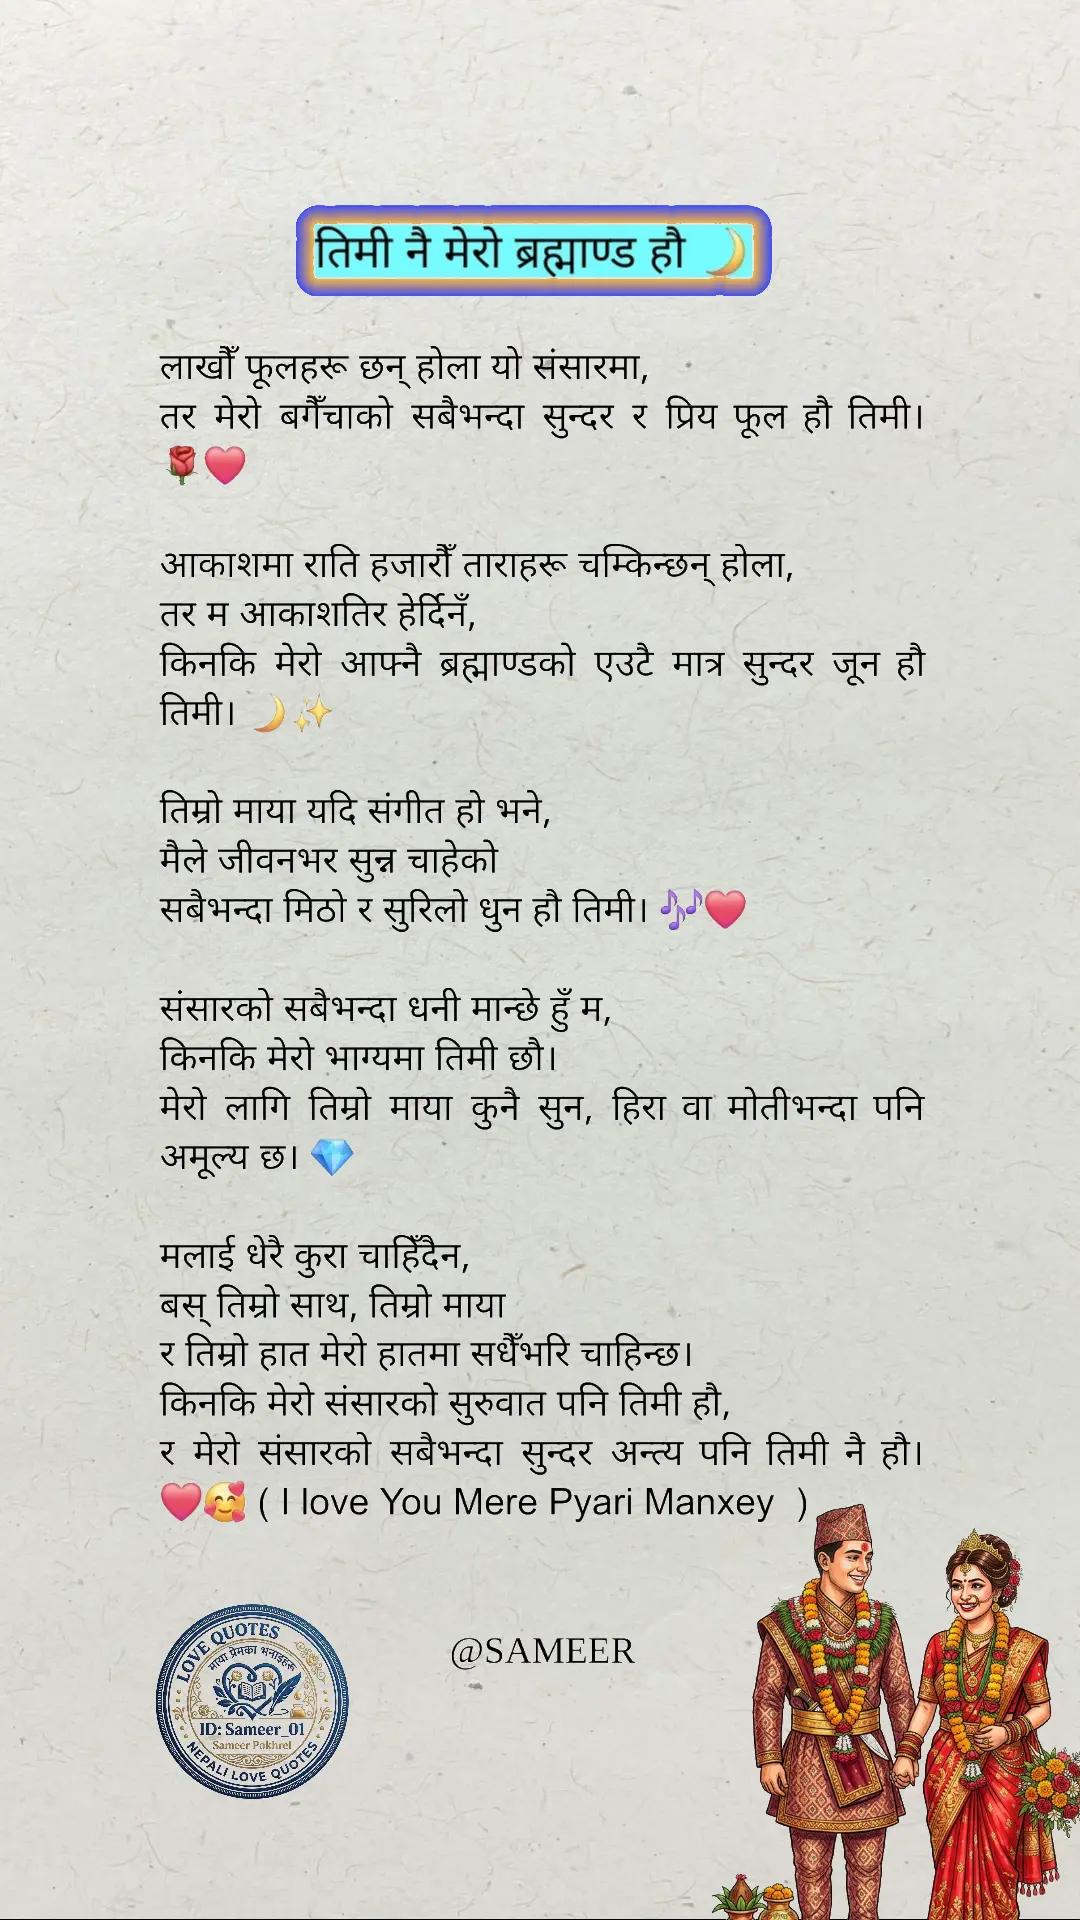 तिमी नै मेरो ब्रह्माण्ड हौ 🌙
लाखौँ फूलहरू छन् होला यो संसारमा,
तर मेरो बगैँचाको सबैभन्दा सुन्दर र प्रिय फूल हौ तिमी।
🌹❤️
आकाशमा राति हजारौँ ताराहरू चम्किन्छन् होला,
तर म आकाशतिर हेर्दिनँ,
किनकि मेरो आफ्नै ब्रह्माण्डको एउटै मात्र सुन्दर जून हौ
तिमी। 🌙✨
तिम्रो माया यदि संगीत हो भने,
मैले जीवनभर सुन्न चाहेको
सबैभन्दा मिठो र सुरिलो धुन हौ तिमी। 🎶❤️
संसारको सबैभन्दा धनी मान्छे हुँ म,
किनकि मेरो भाग्यमा तिमी छौ।
मेरो लागि तिम्रो माया कुनै सुन, हिरा वा मोतीभन्दा पनि
अमूल्य छ। 💎
मलाई धेरै कुरा चाहिँदैन,
बस् तिम्रो साथ, तिम्रो माया
र तिम्रो हात मेरो हातमा सधैँभरि चाहिन्छ।
किनकि मेरो संसारको सुरुवात पनि तिमी हौ,
र मेरो संसारको सबैभन्दा सुन्दर अन्त्य पनि तिमी नै हौ।
❤️🥰 ( I love You Mere Pyari Manxey )
@SAMEER
LOVE QUOTES
माया प्रेमका भनाइहरू
ID: Sameer_01
Sameer Pokhrel
NEPALI LOVE QUOTES